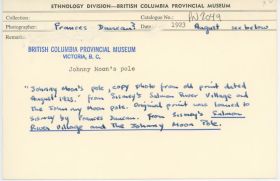 ETHNOLOGY DIVISION—BRITISH COLUMBIA PROVINCIAL MUSEUM
Collection: Catalogue No.: W2099
Photographer: Frances Duncan? Date: 1923 August see below
Remarks:
BRITISH COLUMBIA PROVINCIAL MUSEUM
VICTORIA, B.C.
Johnny Moon's pole
"Johnny Moon's pole, copy photo from old print dated
August 1923." from Sismey's Salmon River Village and
The Johnny Moon pole. Original print was loaned to
Sismey by Frances Duncan. From Sismey's Salmon
River Village and The Johnny Moon Pole.